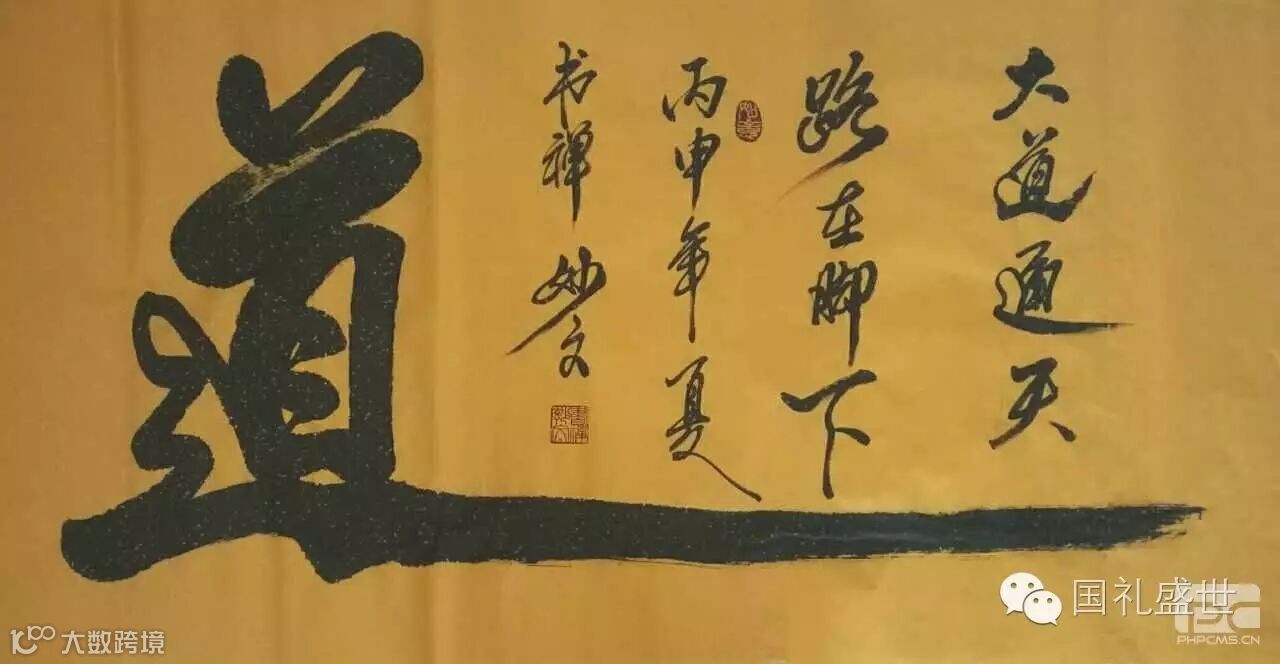 大道通天
路在脚下
丙申年夏
书禅 妙文
道
国礼盛世
PHPCMS.CN
大数跨境